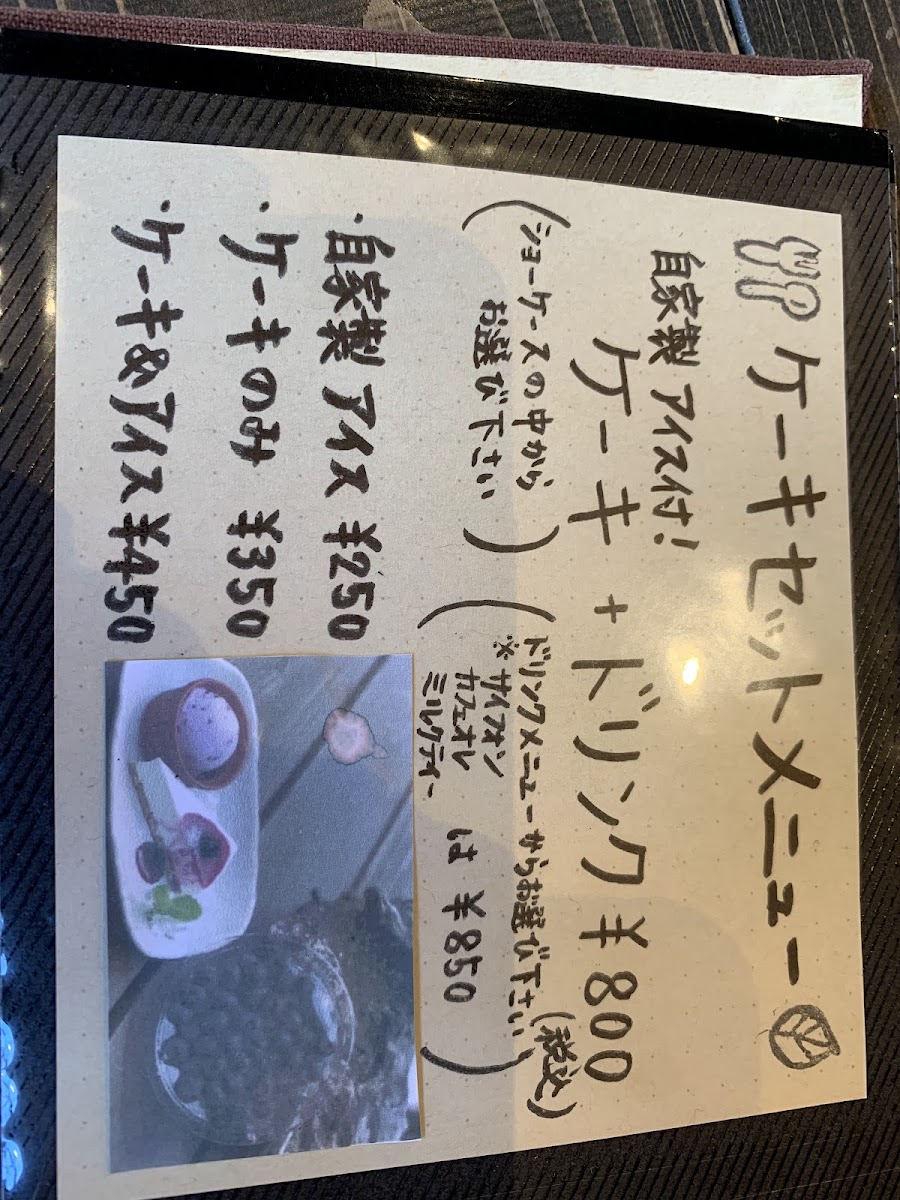 ケーキセットメニュー
自家製アイス付!
ケーキ + ドリンク ¥800
(税込)
(ショーケースの中から
お選び下さい)
(ドリンクメニューからお選び下さい
※サイフォン
カフェオレ
ミルクティー は ¥850)
・自家製アイス ¥250
・ケーキのみ ¥350
・ケーキ&アイス ¥450